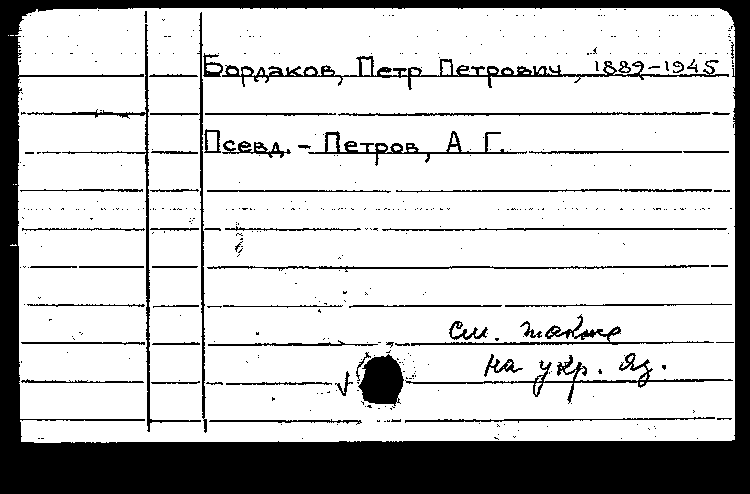 Бордаков, Петр Петрович, 1889-1945
Псевд. - Петров, А. Г.
см. также
на укр. яз.